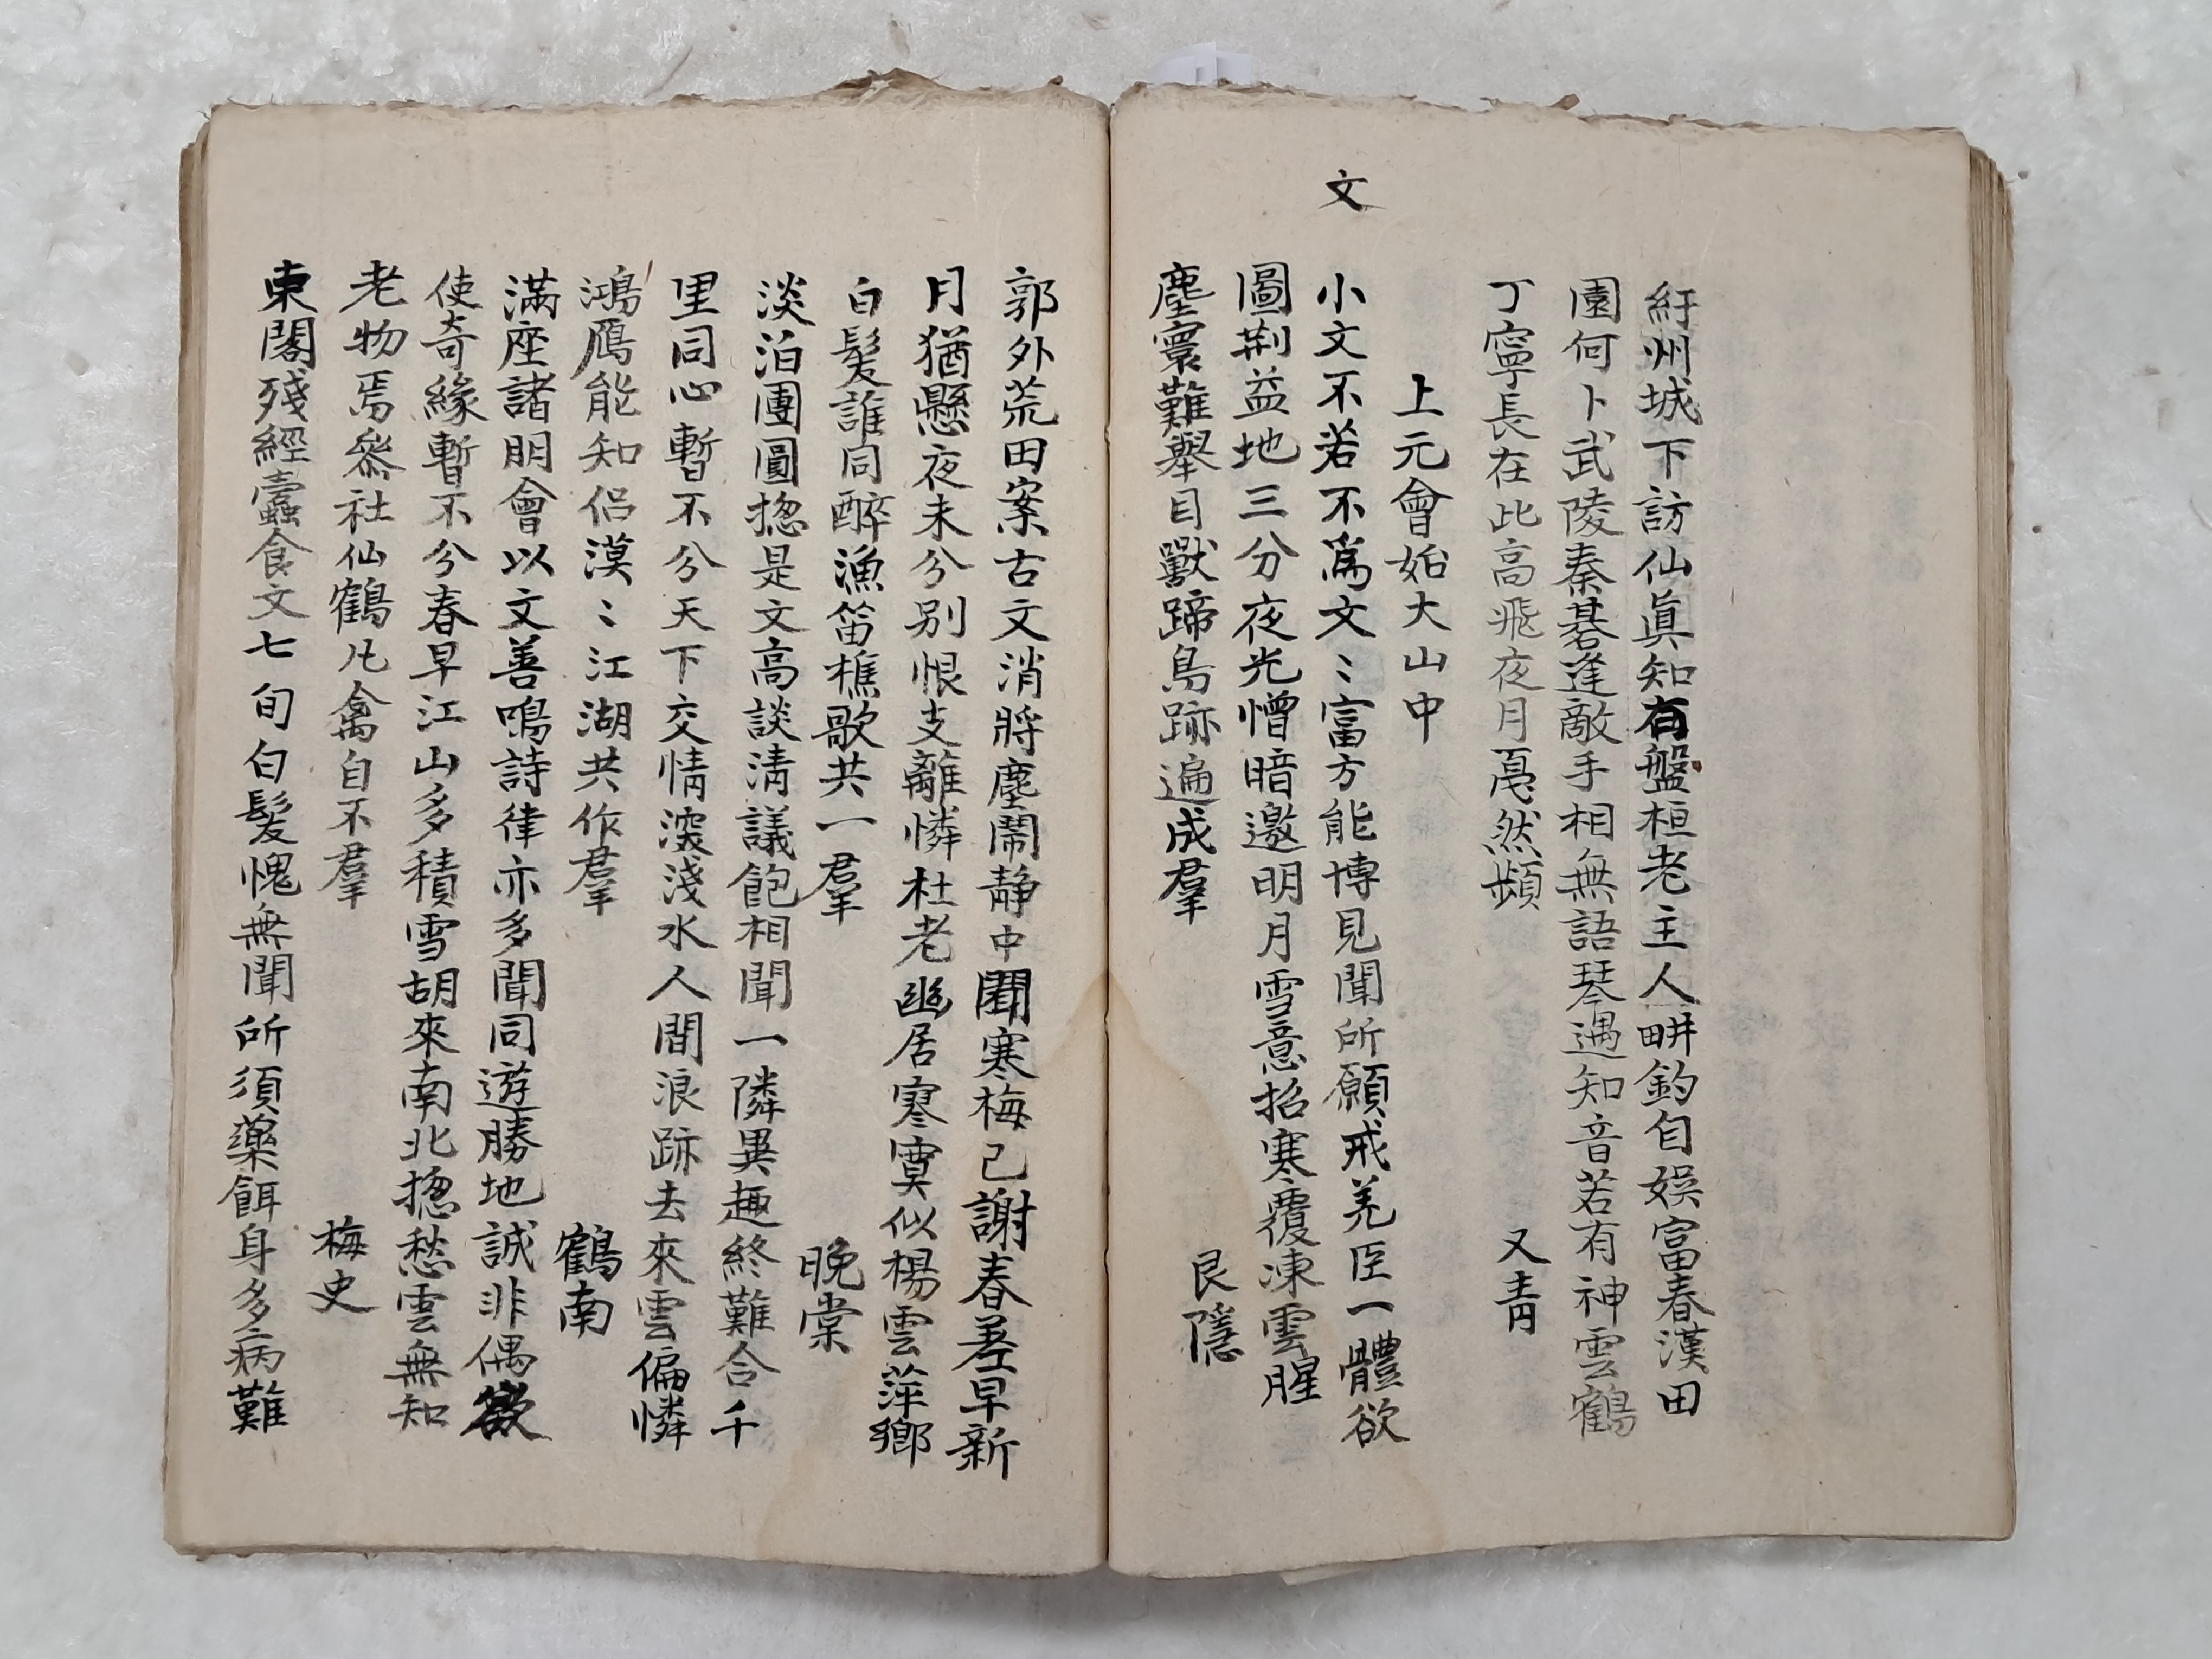 紆州城下訪仙眞知有盤桓老主人畊釣自娛富春漢田
園何卜武陵秦碁逢敵手相無語琴遇知音若有神雲鶴
丁寧長在此高飛夜月戞然頻
又靑
上元會始大山中
文
小文不若不爲文〻富方能博見聞所願戒羌臣一體欲
圖荆益地三分夜光憎暗邀明月雪意招寒覆凍雲腥
塵寰難擧目獸蹄鳥跡遍成羣
艮隱
郭外荒田案古文消將塵鬧静中聞寒梅已謝春差早新
月猶懸夜未分別恨支離憐杜老幽居寒寞似楊雲萍鄉
白髮誰同醉漁笛樵歌共一羣
晩棠
淡泊團圓摠是文高談淸議飽相聞一隣異趣終難合千
里同心暫不分天下交情深淺水人間浪跡去來雲偏憐
鴻鴈能知侶漠〻江湖共作羣
鶴南
滿座諸朋會以文善鳴詩律亦多聞同遊勝地誠非偶欲
使奇緣暫不分春早江山多積雪胡來南北摠愁雲無知
老物焉叅社仙鶴凡禽自不羣
梅史
東閣殘經蠹食文七旬白髮愧無聞所須藥餌身多病難